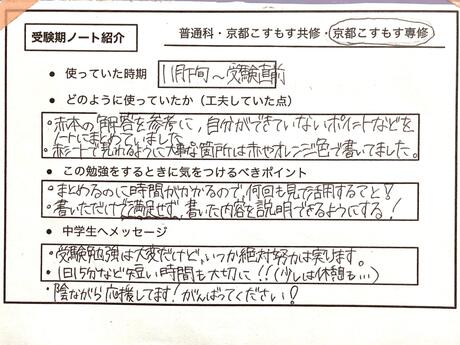 受験期ノート紹介
普通科・京都こすもす共修・京都こすもす専修
● 使っていた時期 11月下旬～受験直前
● どのように使っていたか（工夫していた点）
・赤本の解答を参考に、自分ができていないポイントなどを
ノートにまとめていました
・赤シートで見れるように大事な箇所は赤やオレンジ色で書いてました。
● この勉強をするときに気をつけるべきポイント
・まとめるのに時間がかかるので、何回も見て活用すること！
・書いただけで満足せず、書いた内容を説明できるようにする！
● 中学生へメッセージ
・受験勉強は大変だけど、いつか絶対努力は実ります。
・1日15分など短い時間も大切に！！（少しは休憩も…）
・陰ながら応援してます！がんばってください！